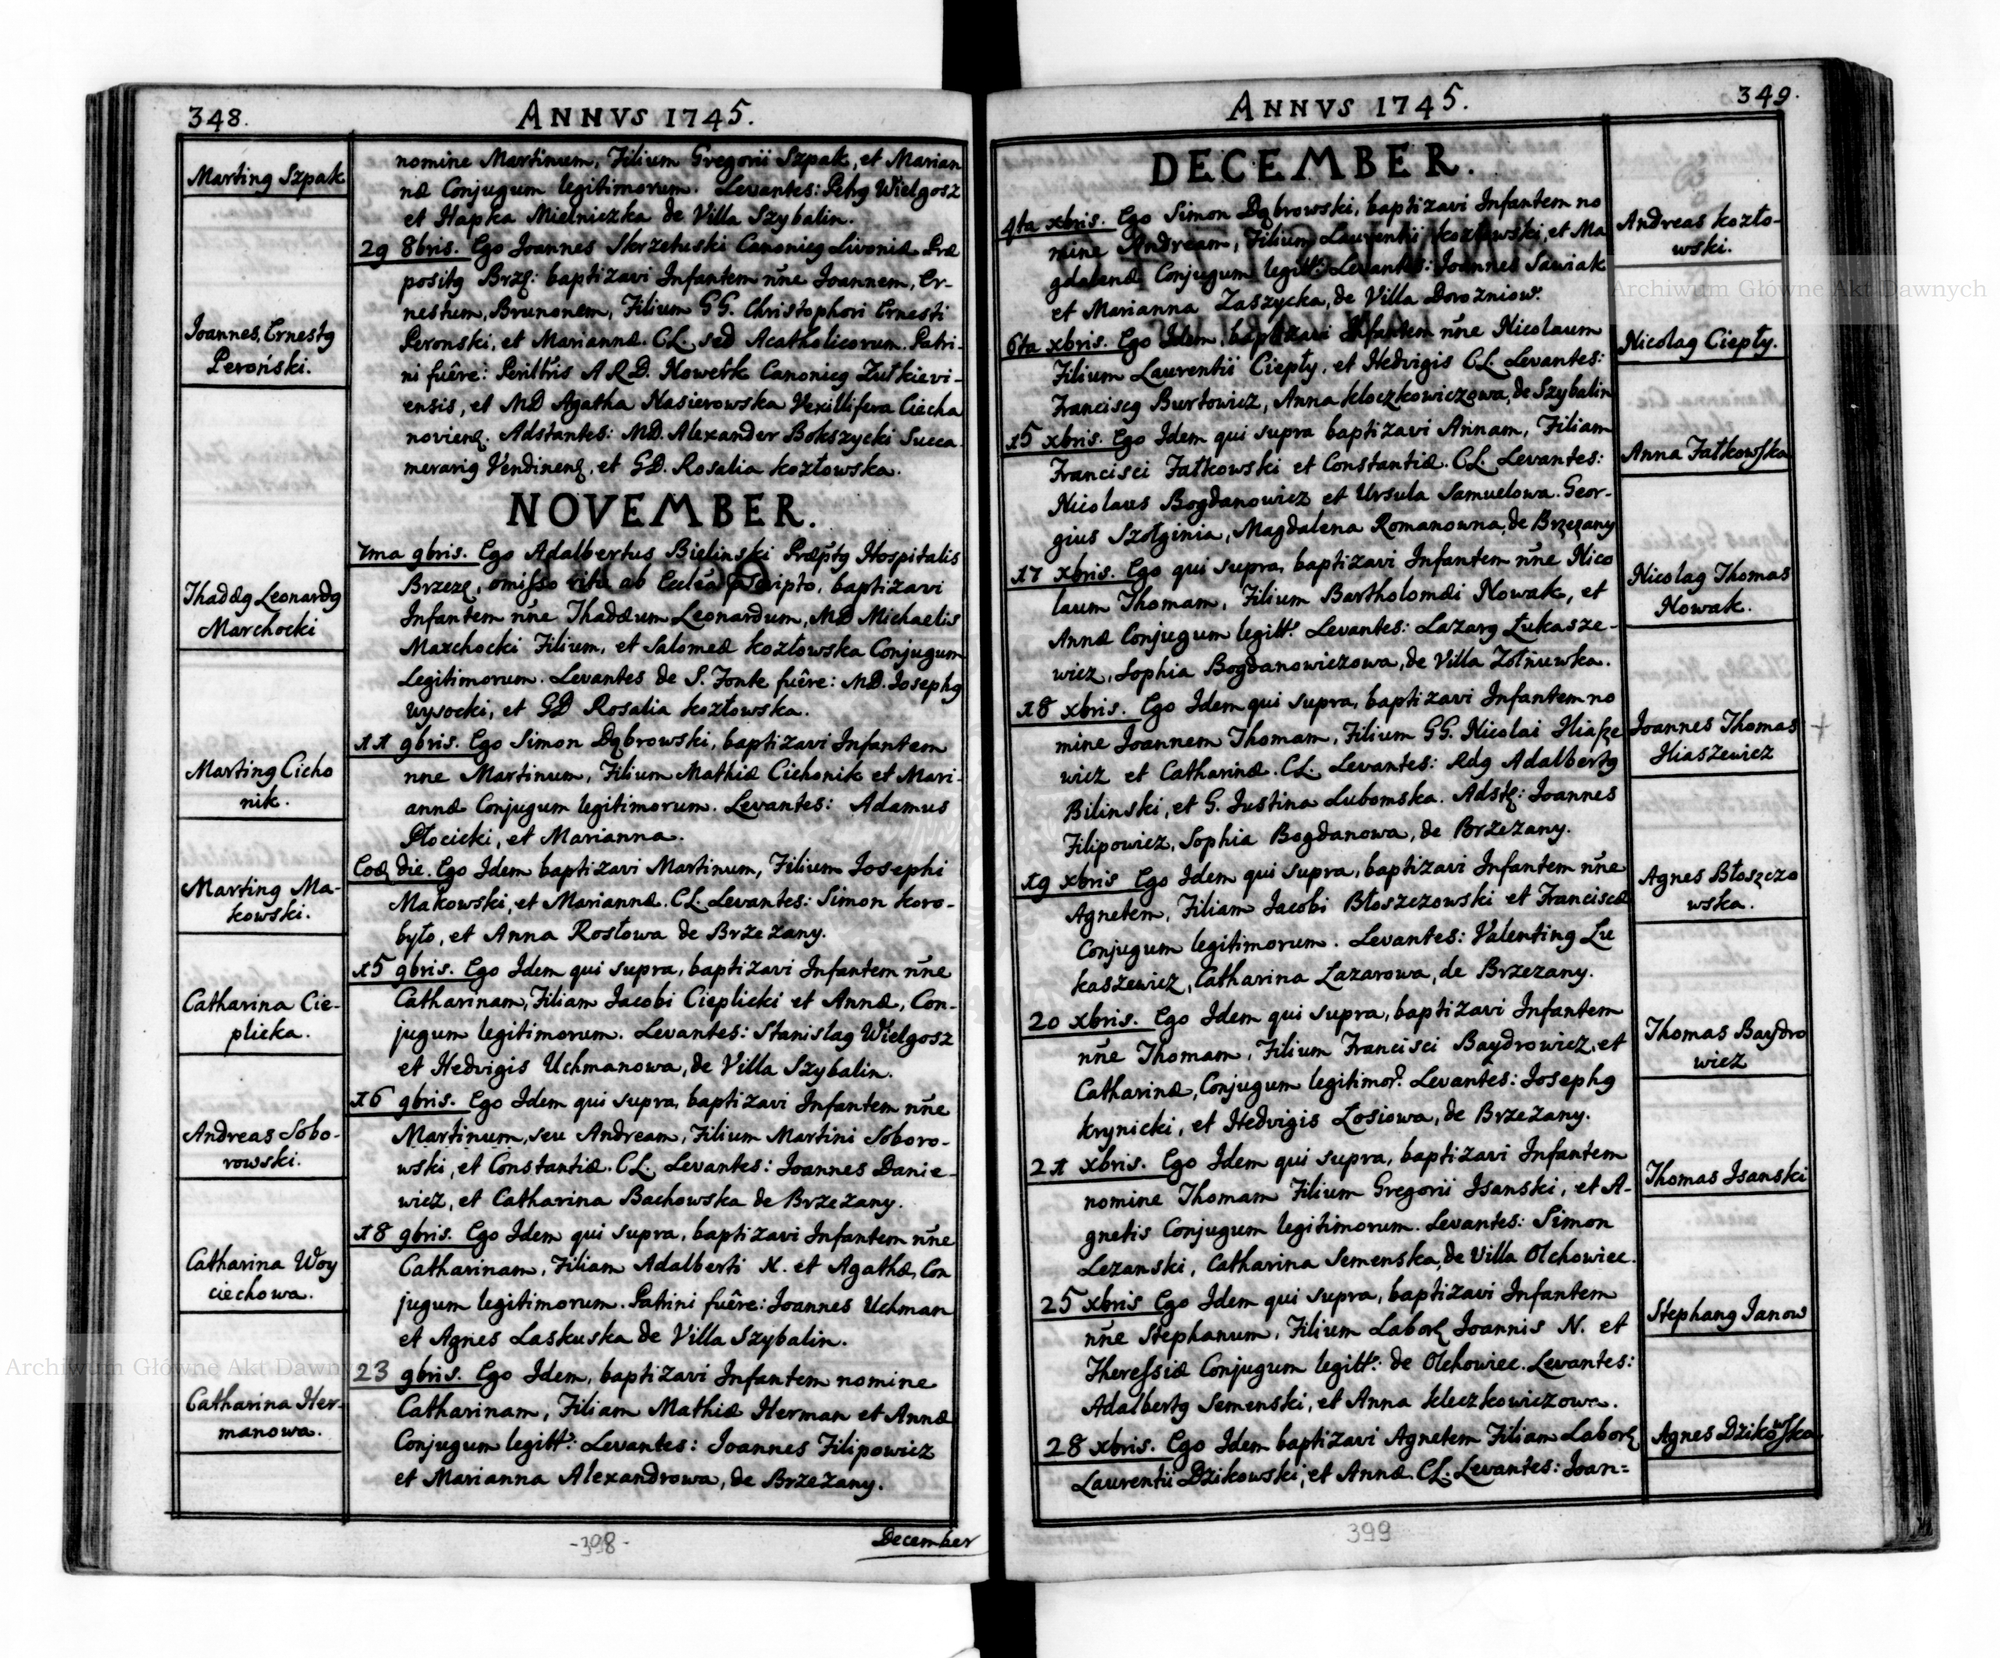 348.
ANNVS 1745.
Marting Szpak
Joannes, Ernestg
Peroński.
Thadæg Leonardg
Marchocki
Marting Cicho
nik.
Marting Ma-
kowski.
Catharina Cie-
plicka.
Andreas Sobo-
rowski.
Catharina Woy
ciechowa.
Catharina Her-
manowa.
nomine Martinum, Filium Gregorii Szpak, et Marian
næ Conjugum legitimorum. Levantes: Petrg Wielgosz
et Hapka Mielniczka de Villa Szybalin.
29 8bris. Ego Joannes Skrzetuski Canonicg Livoniæ Præ
positg Brzę: baptizavi Infantem nñe Joannem, Er-
nestum, Brunonem, Filium GG. Christophori Ernesti
Peronski, et Mariannæ. CL. sed Acatholicorum. Patri-
ni fuêre: Perillris A R D. Nowetk Canonicg Żułkievi-
ensis, et MD Agatha Nasierowska Vexillifera Ciecha
novienę. Adstantes: MD. Alexander Bokszycki Succa-
merarig Vendinenę, et GD. Rosalia kozłowska.
NOVEMBER.
7ma 9bris. Ego Adalbertus Bielinski Præptg Hospitalis
Brzezę, omisso ritu ab Eccleā præscripto, baptizavi
Infantem nñe Thaddæum Leonardum, MD Michaelis
Marchocki Filium, et Salomeæ kozłowska Conjugum
Legitimorum. Levantes de S. Fonte fuêre: MD. Josephg
Wysocki, et GD Rosalia kozłowska.
11 9bris. Ego Simon Dąbrowski, baptizavi Infantem
nne Martinum, Filium Mathiæ Cichonik et Mari-
annæ Conjugum legitimorum. Levantes: Adamus
Płocicki, et Marianna.
Eoę die. Ego Idem baptizavi Martinum, Filium Josephi
Makowski, et Mariannæ. CL. Levantes: Simon koro-
było, et Anna Rosłowa de Brzezany.
15 9bris. Ego Idem qui supra, baptizavi Infantem nñe
Catharinam, Filiam Jacobi Cieplicki et Annæ, Con-
jugum legitimorum. Levantes: Stanislag Wielgosz
et Hedvigis Uchmanowa, de Villa Szybalin.
16 9bris. Ego Idem qui supra, baptizavi Infantem nñe
Martinum, seu Andream, Filium Martini Soboro-
wski, et Constantiæ. CL. Levantes: Joannes Danie-
wicz, et Catharina Bachowska de Brzezany.
18 9bris. Ego Idem qui supra, baptizavi Infantem nñe
Catharinam, Filiam Adalberti N. et Agathæ, Con
jugum legitimorum. Patrini fuêre: Joannes Uchman
et Agnes Laskuska de Villa Szybalin.
23 9bris. Ego Idem, baptizavi Infantem nomine
Catharinam, Filiam Mathiæ Herman et Annæ
Conjugum legitt: Levantes: Joannes Filipowicz
et Marianna Alexandrowa, de Brzezany.
December
-398-
349.
ANNVS 1745.
DECEMBER.
4ta xbris. Ego Simon Dąbrowski, baptizavi Infantem no
mine Andream, Filium Laurentii kozłowski, et Ma
gdalenæ Conjugum legitt: Levantes: Joannes Sawiak
et Marianna Zaszycka, de Villa Dorozniow.
6ta xbris. Ego Idem, baptizavi Infantem nñe Nicolaum
Filium Laurentii Ciepły, et Hedvigis CL. Levantes:
Franciscg Burtowicz, Anna kloczkowiczowa, de Szybalin
15 xbris. Ego Idem qui supra baptizavi Annam, Filiam
Francisci Fałkowski et Constantiæ. CL. Levantes:
Nicolaus Bogdanowicz et Ursula Samuelowa. Geor-
gius Szołginia, Magdalena Romanowna, de Brzezany
17 xbris. Ego qui supra, baptizavi Infantem nñe Nico
laum Thomam, Filium Bartholomæi Nowak, et
Annæ Conjugum legitt: Levantes: Lazarg Łukasze-
wicz, Sophia Bogdanowiczowa, de Villa Zołniuwka.
18 xbris. Ego Idem qui supra, baptizavi Infantem no
mine Joannem Thomam, Filium GG. Nicolai Hiasze
wicz et Catharinæ. CL. Levantes: Rdg Adalbertg
Bilinski, et G. Justina Lubomska. Adstę: Joannes
Filipowicz, Sophia Bogdanowa, de Brzezany.
19 xbris Ego Idem qui supra, baptizavi Infantem nñe
Agnetem, Filiam Jacobi Błoszczowski et Franciscæ
Conjugum legitimorum. Levantes: Valenting Lu
kaszewicz, Catharina Lazarowa, de Brzezany.
20 xbris. Ego Idem qui supra, baptizavi Infantem
nñe Thomam, Filium Francisci Baydrowicz, et
Catharinæ, Conjugum legitimor. Levantes: Josephg
krynicki, et Hedvigis Losiowa, de Brzezany.
21 xbris. Ego Idem qui supra, baptizavi Infantem
nomine Thomam Filium Gregorii Isanski, et A-
gnetis Conjugum legitimorum. Levantes: Simon
Lezanski, Catharina Semenska, de Villa Olchowiec.
25 xbris Ego Idem qui supra, baptizavi Infantem
nñe Stephanum, Filium Laborę Joannis N. et
Theressiæ Conjugum legitt: de Olchowiec. Levantes:
Adalbertg Semenski, et Anna kleczkowiczowa.
28 xbris. Ego Idem baptizavi Agnetem Filiam Laborę
Laurentii Dzikowski, et Annæ. CL. Levantes: Joan=
Andreas kozło-
wski.
Nicolag Ciepły.
Anna Fałkowska
Nicolag Thomas
Nowak.
Joannes Thomas
Hiaszewicz
Agnes Błoszczo
wska.
Thomas Baydro
wicz
Thomas Isanski
Stephang Janow
Agnes Dzikowska
399
Archiwum Główne Akt Dawnych
Archiwum Główne Akt Dawnych